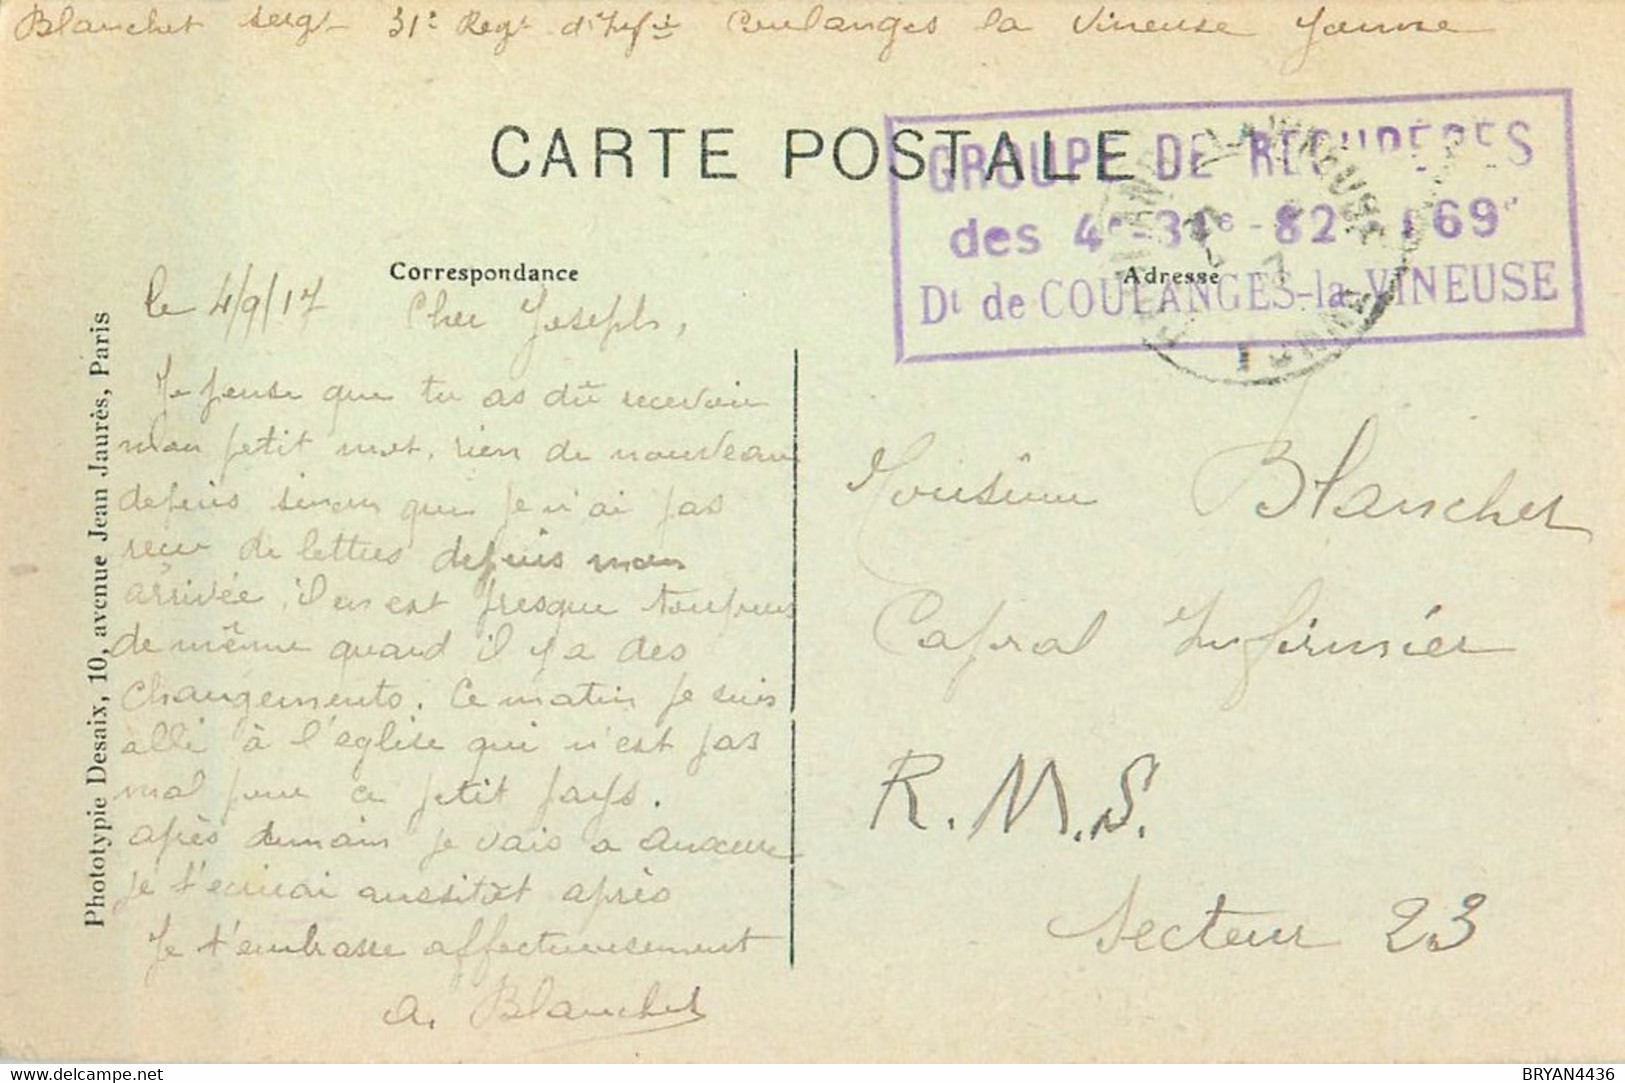 Blanchet sergt 31e Regt d'Inf ie Coulanges la Vineuse Yonne
CARTE POSTALE
GROUPE DE RECUPERES
des 4e-31e-82 169e
Dt de COULANGES-la-VINEUSE
Correspondance
Adresse
le 4/9/17 Cher Joseph,
Je pense que tu as dû recevoir
mon petit mot, rien de nouveau
depuis sinon que je n'ai pas
recu de lettres depuis mon
arrivée, il en est presque toujours
de même quand il y a des
changements. Ce matin je suis
allé à l'eglise qui n'est pas
mal pour ce petit pays.
après demain je vais a Auxerre
je t'ecrirai aussitôt après
Je t'embrasse affectueusement
A. Blanchet
Monsieur Blanchet
Caporal Infirmier
R.M.S.
Secteur 23
Phototypie Desaix, 10, avenue Jean Jaurès, Paris
delcampe.net
BRYAN4436